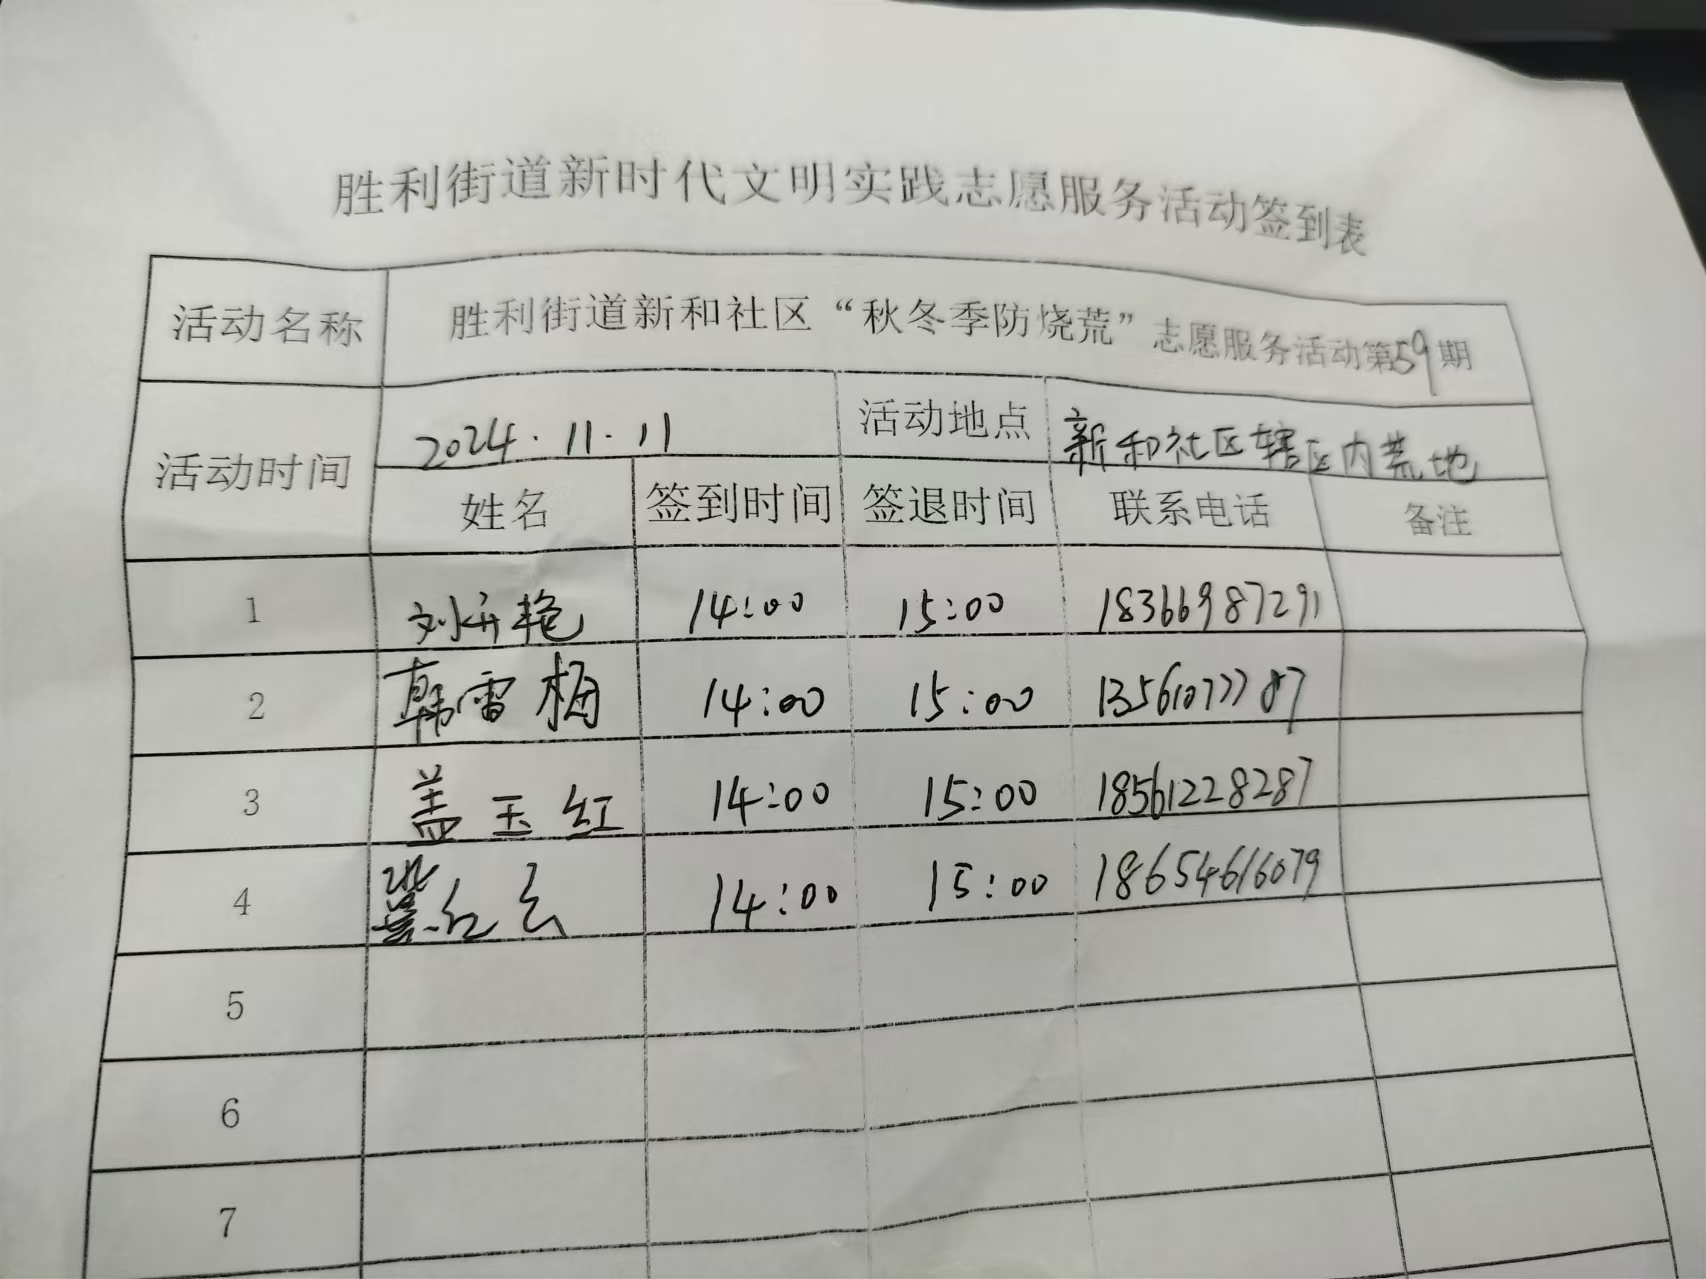 胜利街道新时代文明实践志愿服务活动签到表
活动名称 胜利街道新和社区“秋冬季防烧荒”志愿服务活动第59期
活动时间 2024.11.11 活动地点 新和社区辖区内荒地
姓名 签到时间 签退时间 联系电话 备注
1 刘艳 14:00 15:00 18366987291
2 韩雪梅 14:00 15:00 13561077787
3 盖玉红 14:00 15:00 18561228287
4 红云 14:00 15:00 18654616079
5
6
7